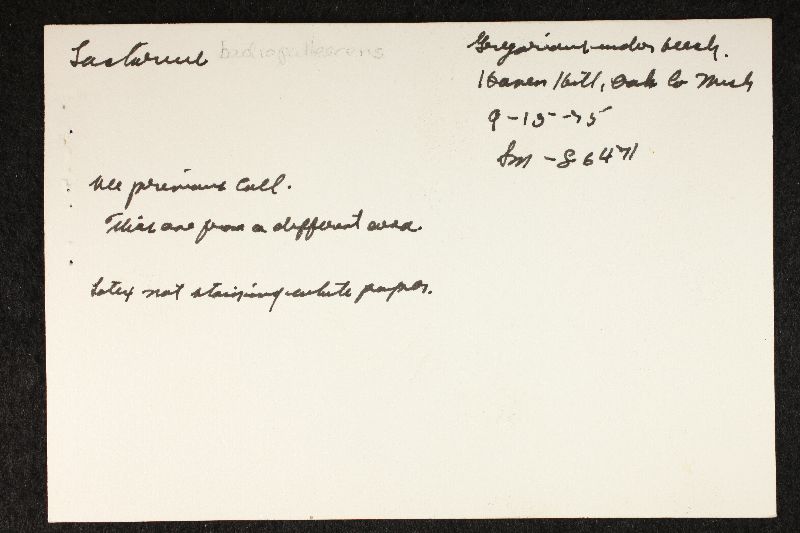 Lactarius badiopallescens
Gregarious under beech.
Haven Hill, Oak Co Mich
9-15-75
Sm-86471
See previous coll.
This one from a different area.
Latex not staining white paper.